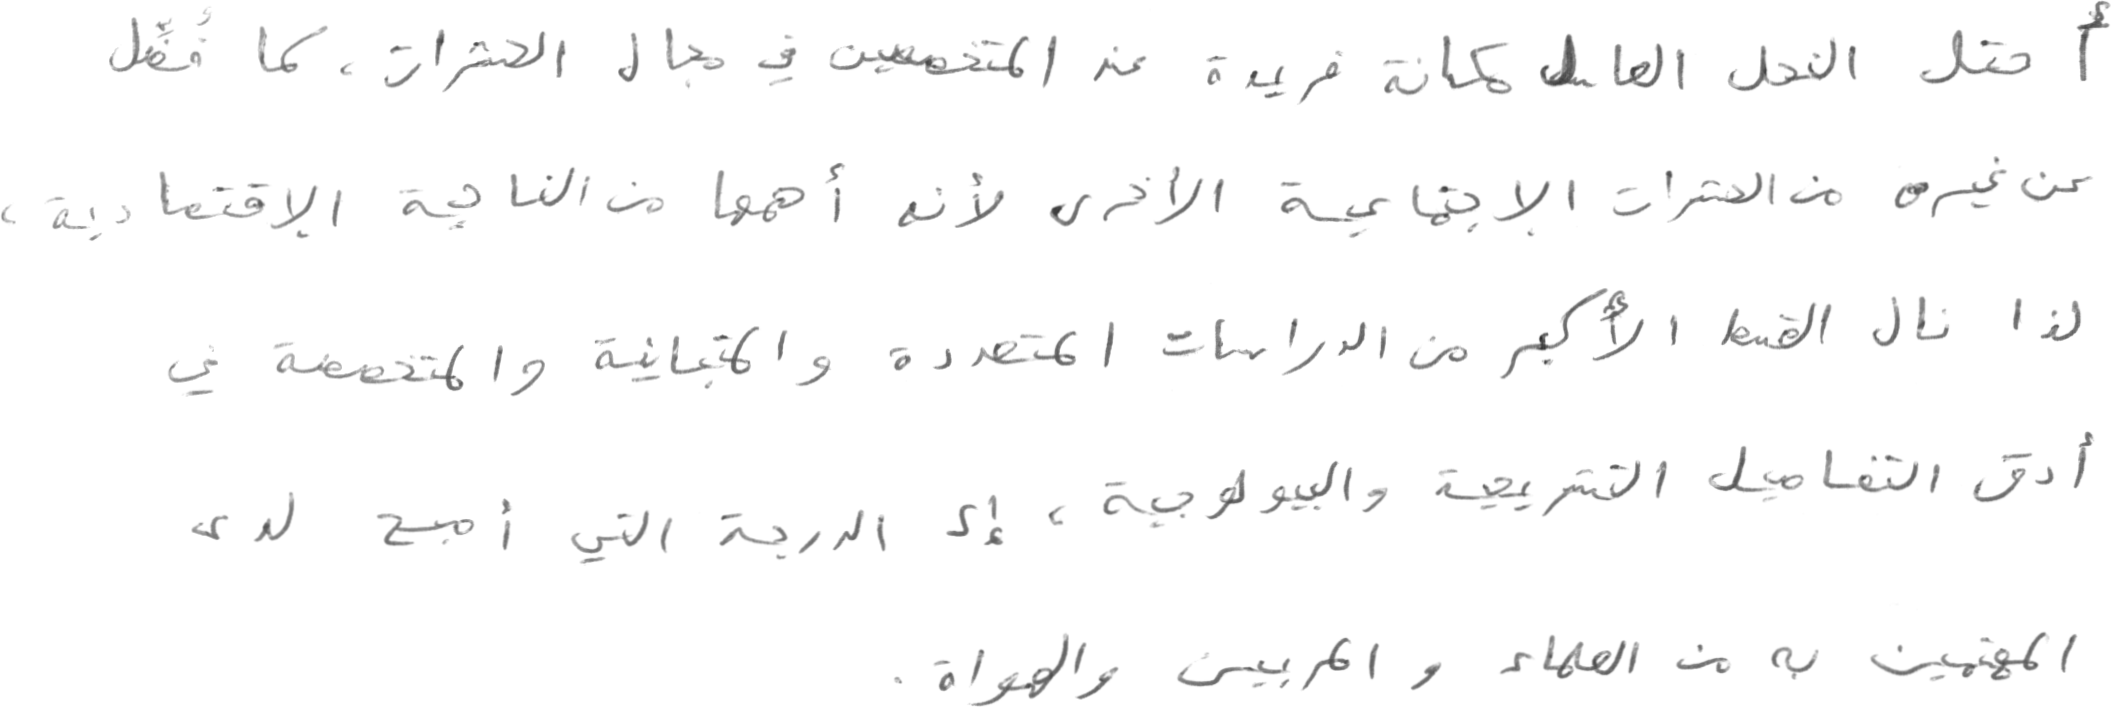 أحتل النحل العاسل مكانة فريدة عند المتخصصين في مجال الحشرات، كما فُضِّل
عن غيره من الحشرات الإجتماعية الأخرى لأنه أهمها من الناحية الإقتصادية،
لذا نال القسط الأكبر من الدراسات المتعددة والمتباينة والمتخصصة في
أدق التفاصيل التشريحية والبيولوجية، إلى الدرجة التي أصبح لدى
المهتمين به من العلماء والمربين والهواة.